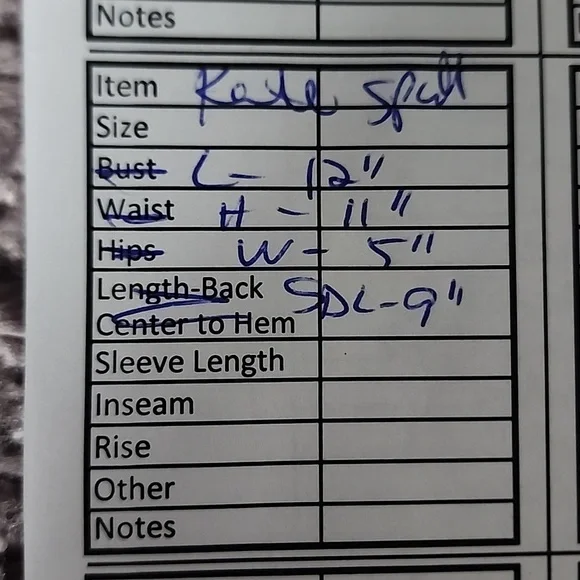 Notes
Item Kate Spade
Size
Bust L - 12"
Waist H - 11"
Hips W - 5"
Length-Back SDL-9"
Center to Hem
Sleeve Length
Inseam
Rise
Other
Notes